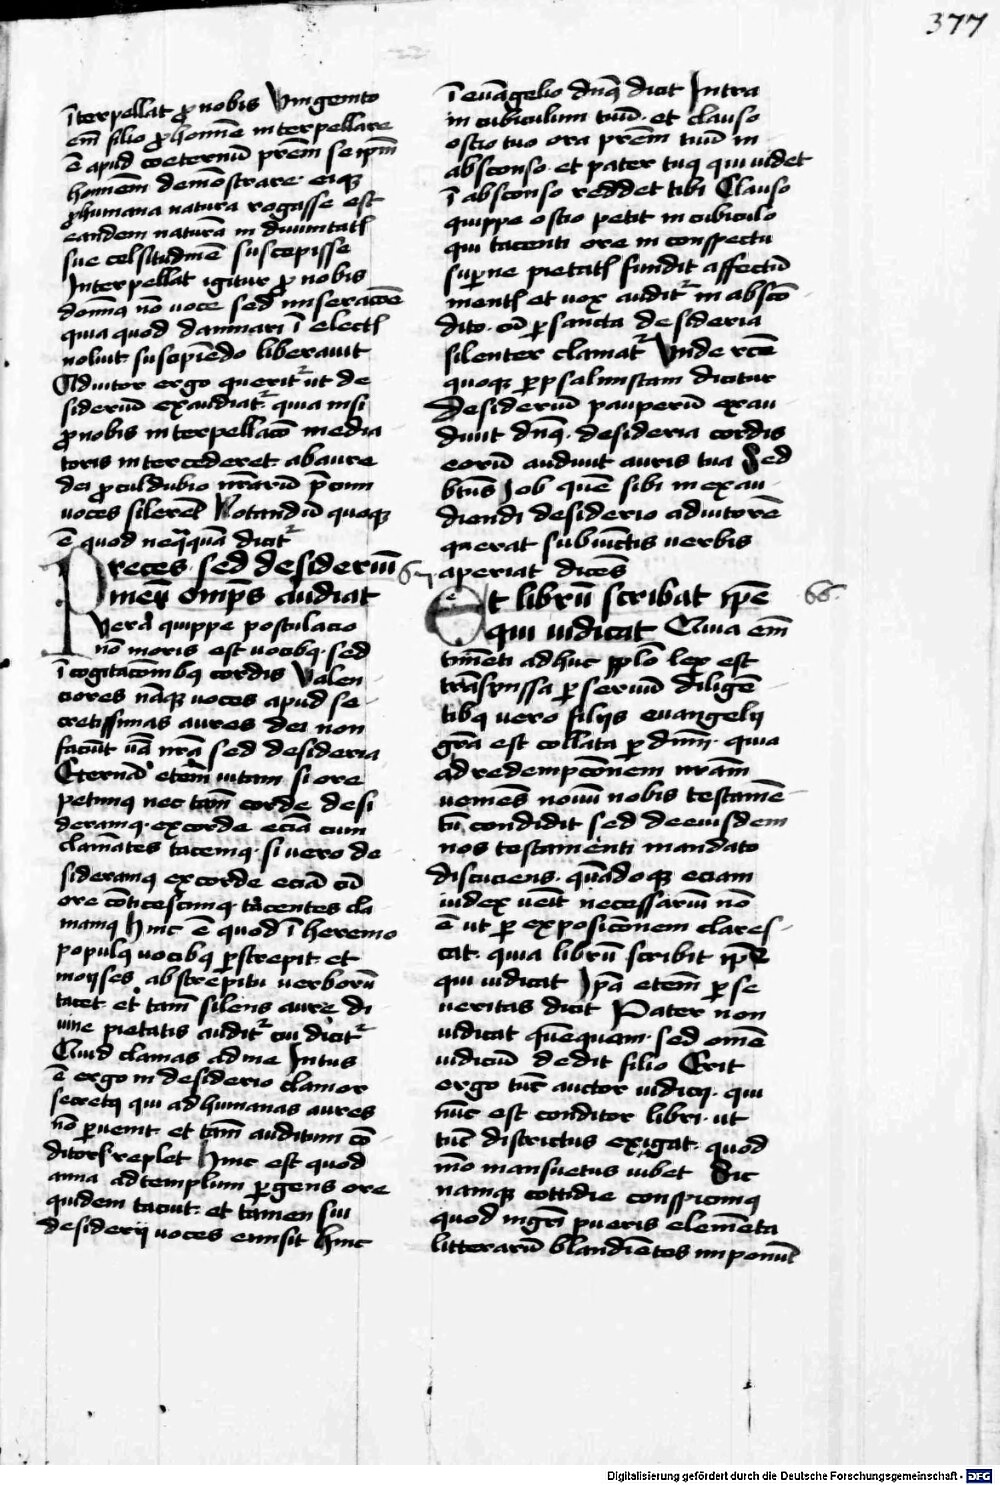 377
ĩterpellat ꝓ nobis Vnigenito
em̄ filio ꝓ homīe interpellare
ē apud coeternū prēm seip̄m
hominem demōstrare. eiqꝫ
ꝓ humana natura rogasse est
eandem naturā in diuinitatꝭ
sue celsitudinē suscepisse
Interpellat igitur ꝓ nobis
dominꝰ nō uoce sed miseracōe
quia quod damnari ī electꝭ
noluit suscipiēdo liberauit
Adiutor ergo querit᷑ ut de
siderium exaudiat᷑. quia nisi
ꝓ nobis interpellacō media
toris intercederet. ab aure
dei ꝓculdubio nr̄arū p̄cum
uoces silerēt Notandū quoqꝫ
ē quod neq̄quā dicit᷑
Preces. sed desiderium 67
meū omīps audiat
Vera quippe postulacio
nō in oris est uocibꝰ. sed
ī cogitacōnibꝰ cordis Valen
ciores nāqꝫ uoces apud se
cretissimas aures dei non
faciūt uerba nr̄a sed desideria
Eternā etem̄ uitam si ore
petimꝰ nec tam̄ corde desi
deramꝰ. ex corde eciā cum
clamātes tacemꝰ. si uero de
sideramꝰ ex corde eciā cū
ore cōticescimꝰ. tacentes cla
mamꝰ Hinc ē quod ī heremo
populꝰ uocibꝰ ꝑstrepit. et
moyses. abstrepitu uerborū
tacet. et tam̄ silens aure di
uine pietatis audit᷑ cui dicit᷑
Quid clamas ad me Intus
ē ergo in desiderio clamor
secretꝰ qui ad humanas aures
nō ꝑuenit. et tam̄ auditum cō
ditoris replet Hinc est quod
anna ad templum ꝑgens ore
quidem tacuit. et tamen sui
desiderij uoces emisit Hinc
ī euāgelio dn̄s dicit Intra
in cubiculum tuū. et clauso
ostio tuo ora prēm tuū in
absconso. et pater tuꝰ qui uidet
ī absconso reddet tibi Clauso
quippe ostio petit in cubiculo
qui tacenti ore in conspectu
suꝑne pietatꝭ fundit affectū
mentꝭ et uox audit᷑ in abscō
dito. cū ꝑ sancta desideria
silenter clamat᷑ Vnde rēe
quoqꝫ ꝑ psalmistam dicitur
Desideriū pauperū exau
diuit dn̄s. desideria cordis
eorū audiuit auris tua Sed
btūs Job quē sibi in exau
diendi desiderio adiutorē
querat subiunctis uerbis
aperiat dicēs
Et librū scribat ip̄e 68.
qui iudicat Quia em̄
timenti adhuc pplo lex est
trāsmissa ꝑ seruū diligē
tibꝰ vero filijs euangelij
gr̄a est collata ꝑ dnm̄. quia
ad redempcōnem nr̄am
ueniēs nouū nobis testamē
tū condidit sed de eiusdem
nos testamenti mandato
discuciens. quādoqꝫ eciam
iudex ueīt necessariū nō
ē ut ꝑ exposicōnem clares
cat. quia librū scribit ip̄e
qui iudicat Ip̄a etem̄ ꝑ se
ueritas dicit Pater non
iudicat quēquam. sed omē
iudiciū dedit filio Erit
ergo tūc auctor iudicij. qui
nūc est conditor libri. ut
tūc districtus exigat. quod
mō mansuetus iubet Sic
namqꝫ cottidie conspicimꝰ
quod mgrī pueris elemēta
litterarū blandiētes imponūt
Digitalisierung gefördert durch die Deutsche Forschungsgemeinschaft - DFG